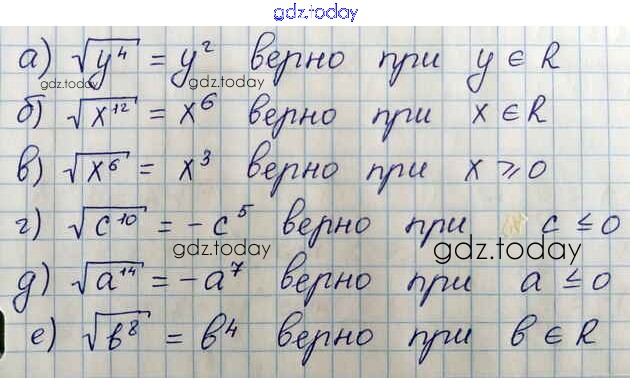 gdz.today
а) √y⁴ = y² верно при y ∈ R
gdz.today gdz.today
б) √x¹² = x⁶ верно при x ∈ R
в) √x⁶ = x³ верно при x ⩾ 0
г) √c¹⁰ = -c⁵ верно при c ≤ 0
gdz.today gdz.today
д) √a¹⁴ = -a⁷ верно при a ≤ 0
е) √b⁸ = b⁴ верно при b ∈ R